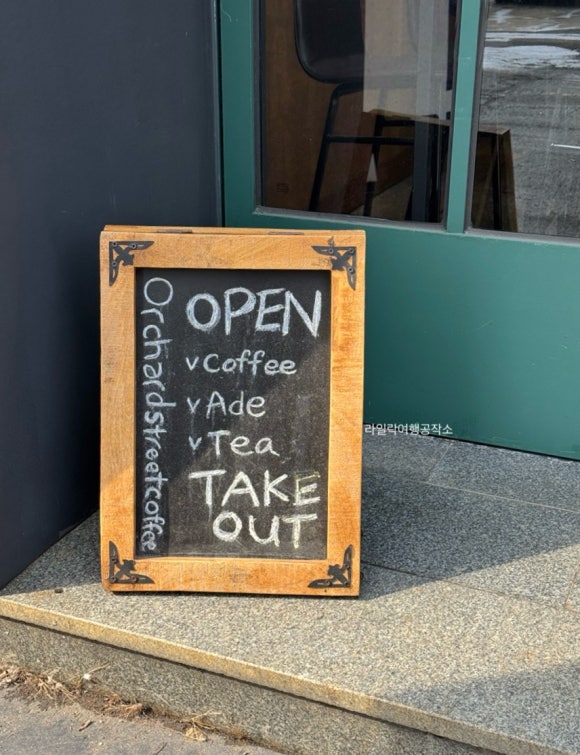 Orchardstreetcoffee
OPEN
v Coffee
v Ade
v Tea
TAKE
OUT
라일락여행공작소